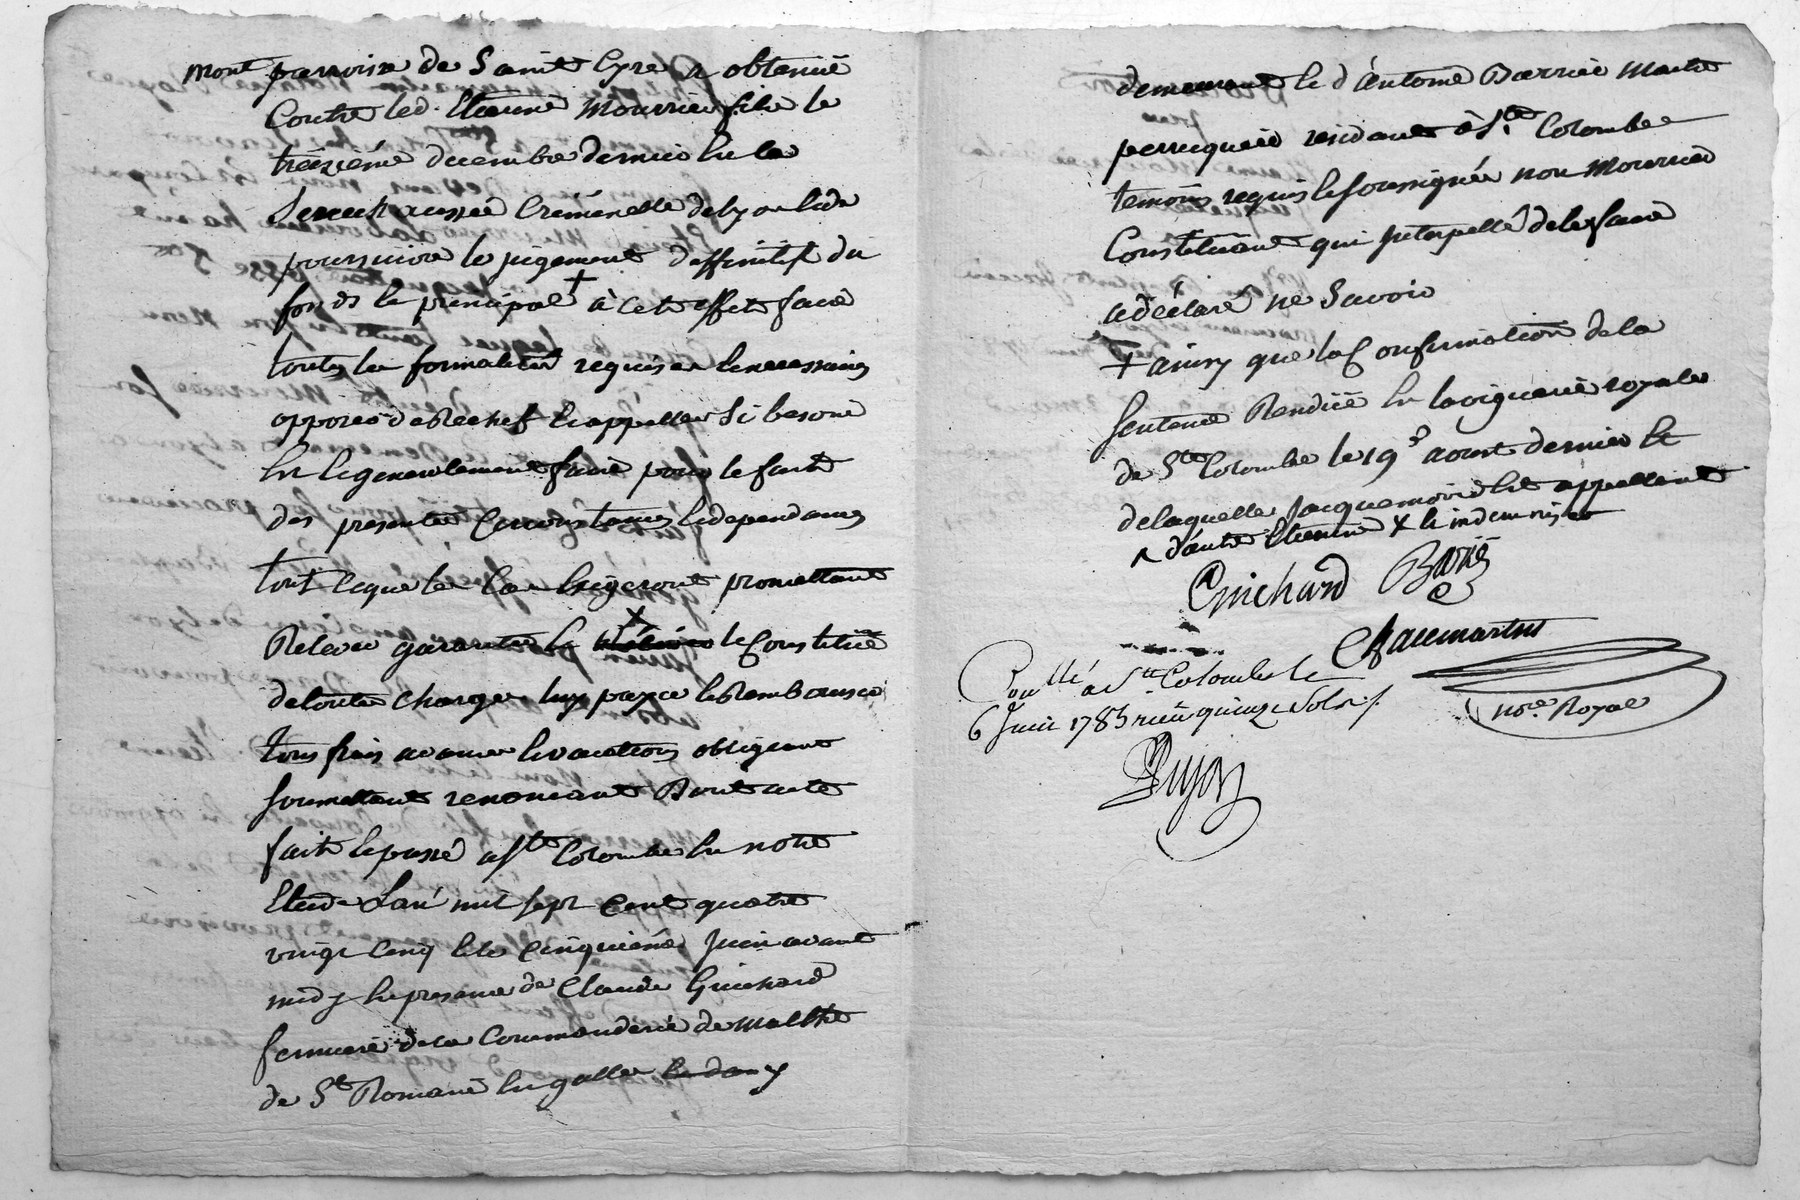 mont parroisse de Saint Cyre a obtenüe
Contre led. Etienne Mourrier fils le
treizième decembre dernier En la
Senechaussée Criminelle de Lyon Et de
poursuivre le jugement deffinitif du
fonds Et principal + à Cet effet faire
toutes les formalités requises Et necessaires
opposer de Rechef Et appeller Si besoin
En Et generalement faire pour le fait
des presentes Circonstances Et dependances
tout Ce que le Cas Exigeront promettant
Relever garantir Et x le Constitué
de toutes charges luy payer Et Rembourser
tous frais avances Et vacations obligeant
soumettant renoncant Dont acte
fait Et passé a Ste Colombe En notre
Etude L'an mil sept Cent quatre
vingt Cinq Et le Cinquieme Juin avant
midy En presence de Claude Guichard
fermier de la Commanderie de Malthe
de St Romain En galles
demeurant Et d'antoine Barrier Maitre
perruquier residant à Ste Colombe
temoins requis Et soussignés non Mourrier
Constituant qui Interpellé de le faire
a déclaré ne Savoir
+ ainsy que la Confirmation de la
Sentence Rendüe En la viguerie royale
de Ste Colombe le 19e aoust dernier Et
de laquelle Jacquemoire Est appellant
^ d'autre Etienne x Et indemniser
Guichard Barier
Chaumartin
nore. Royal
Conllé a Ste Colombe le
6 Juin 1785 reçu quinze Sols ./.
Dujon